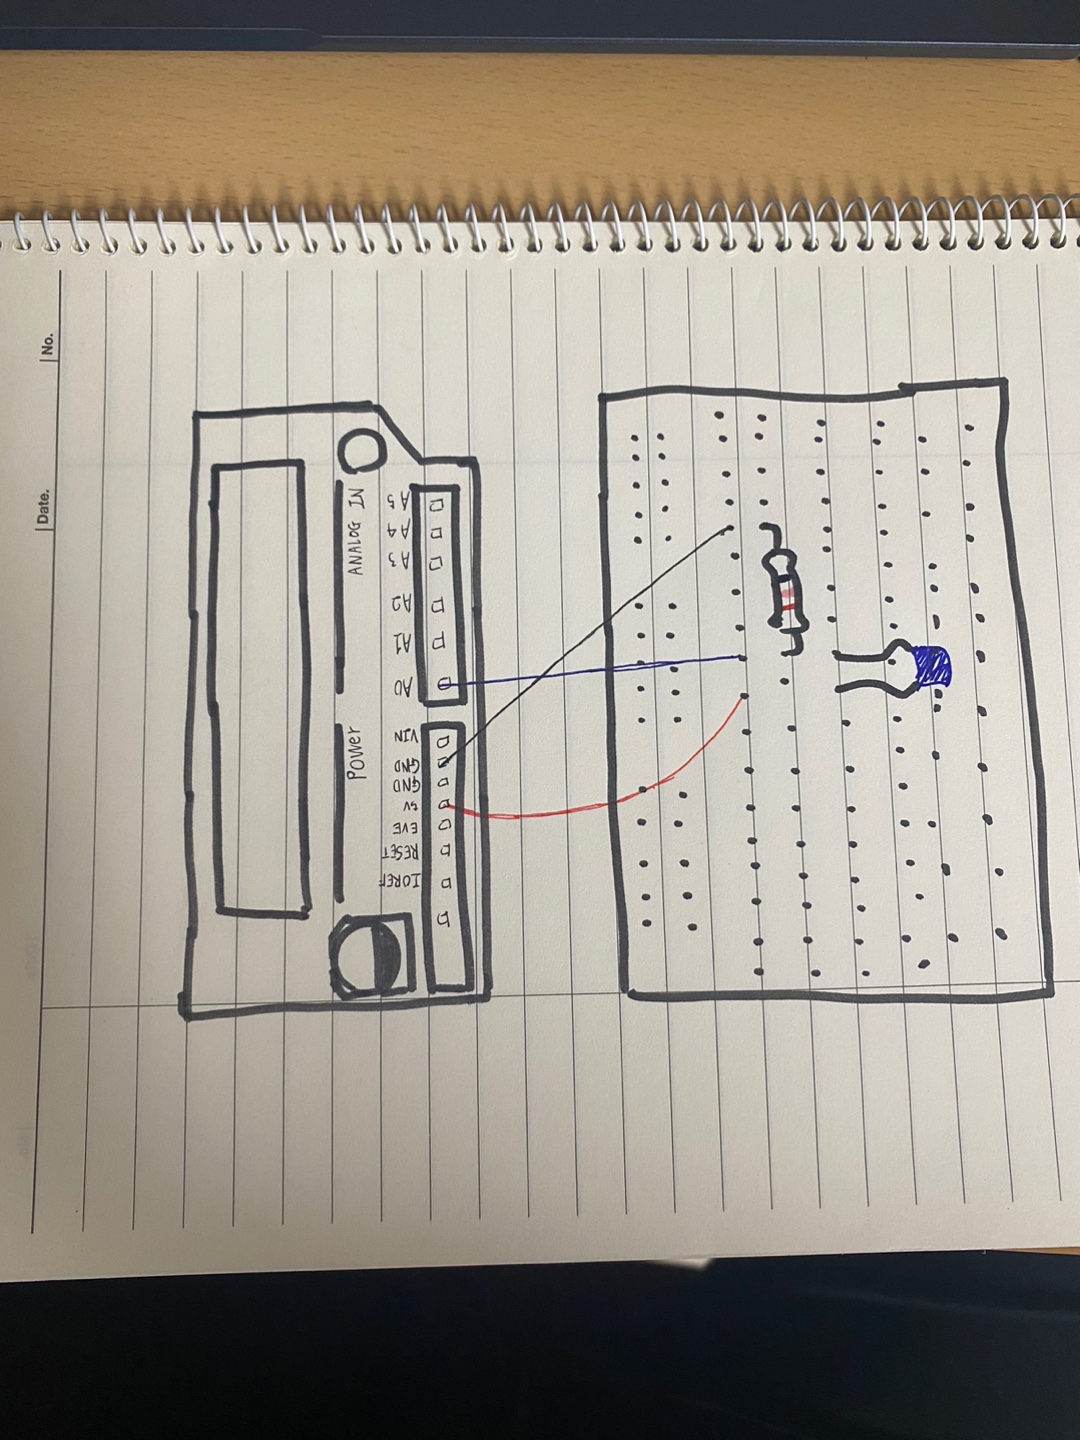 No.
Date.
ANALOG IN
A5
A4
A3
A2
A1
A0
Power
VIN
GND
GND
5V
3V3
RESET
IOREF